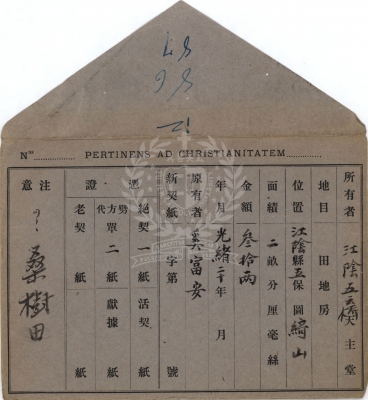 Nos PERTINENS AD CHRISTIANITATEM
所有者 江陰五云橋天主堂
地目 田地房
位置 江陰縣五保圖綺山
面績 二畝分厘毫絲
金額 叁拾兩
年月 光緒二十年 月
原有者 吳富安
新契紙 字第 號
憑證 絕契一紙 活契 紙
劈方單二紙 獻據 紙
代
老契 紙 紙
注意 桑樹田